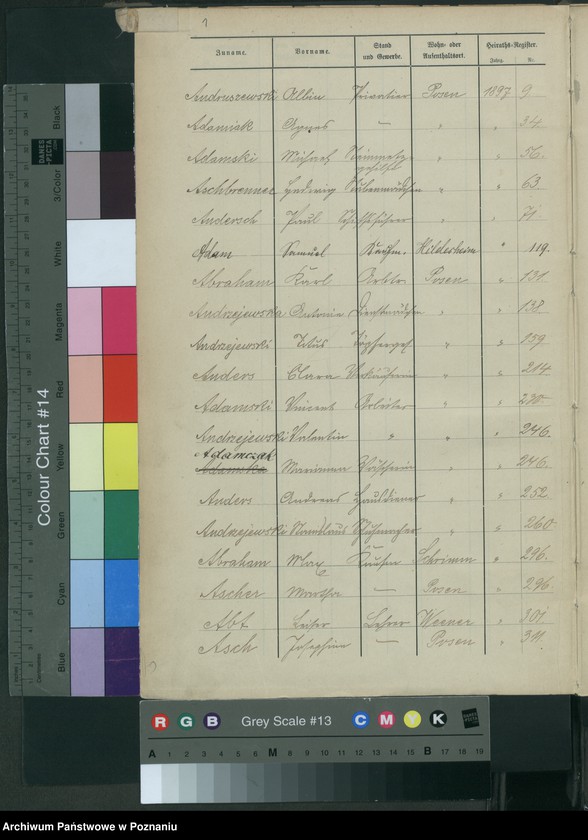 1
Zuname. Vorname. Stand und Gewerbe. Wohn- oder Aufenthaltsort. Heiraths-Register. Jahrg. Nr.
Andruszewski Albin Privatier Posen 1897 9
Adamiak Agnes — " " 34
Adamski Michael Steinmetzgehilfe " " 56
Aschbrenner Hedwig " " 63
Andersch Paul Schiffsführer " " 71
Adam Samuel Kaufm. Hildesheim " 119
Abraham Karl Posen " 131
Andrzejewska Antonie Dienstmädchen " " 138
Andrzejewski Titus Töpferges " " 159
Anders Clara Verkäuferin " " 214
Adamski Vincent Arbeiter " "
Andrzejewski Valentin " " " 246.
Adamczak
Adamska Marianna " " 246.
Anders Andreas Hausdiener " " 252
Andrzejewski Stanislaus Schuhmacher " " 260
Abraham Max Kaufm Schrimm " 296.
Ascher Martha — Posen " 296
Abt Lehrer Weener " 301
Asch Josephine — Posen " 311.
Colour Chart #14
Black
3/Color
White
Magenta
Red
Yellow
Green
Cyan
Blue
DANES PICTA
R G B Grey Scale #13 C M Y K
A 1 2 3 4 5 6 M 8 9 10 11 12 13 14 15 B 17 18 19
Archiwum Państwowe w Poznaniu